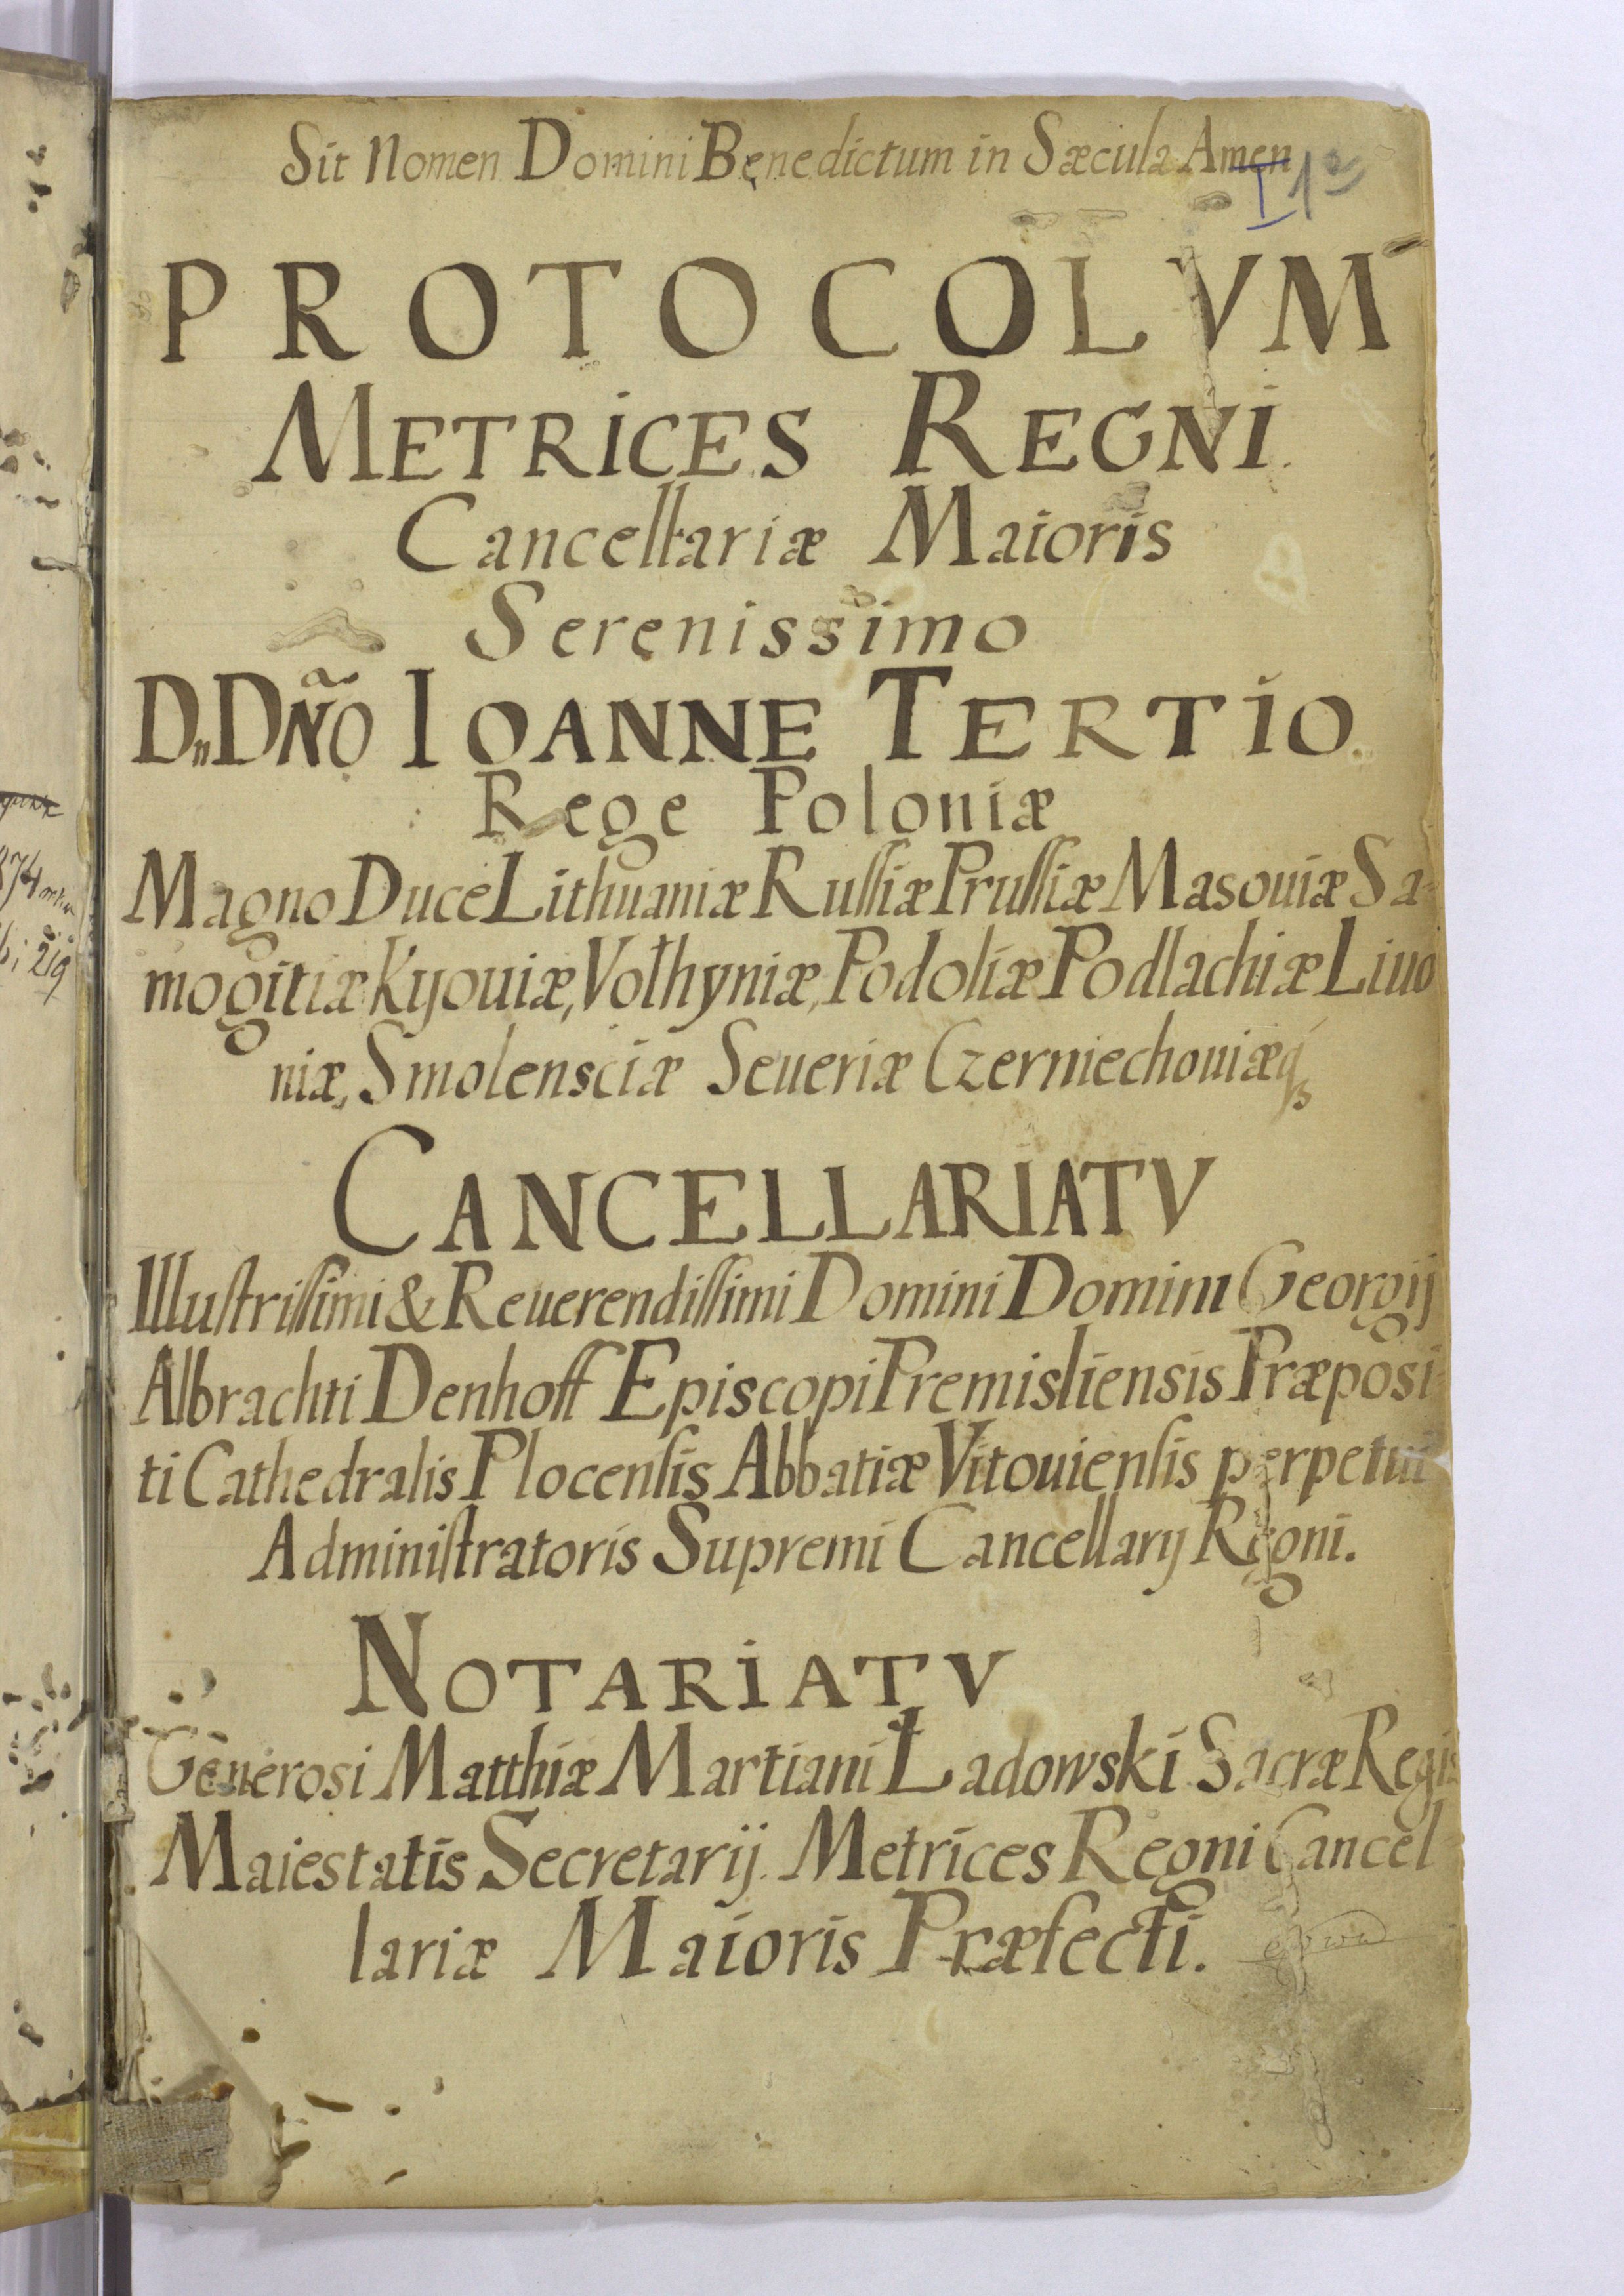 Sit Nomen Domini Benedictum in Sæcula Amen
I 1
PROTOCOLVM
METRICES REGNI.
Cancellariæ Maioris
Serenissimo
D,,DÑO IOANNE TERTIO.
Rege Poloniæ
Magno Duce Lithuaniæ Russiæ Prussiæ Masouiæ Sa-
mogitiæ Kyouiæ, Volhyniæ, Podoliæ Podlachiæ Liuo
niæ, Smolensciæ Seueriæ Czerniechouiæq́;
CANCELLARIATV
Illustrissimi & Reuerendissimi Domini Domini Georgij
Albrachti Denhoff Episcopi Premisliensis Præposi-
ti Cathedralis Plocensis Abbatiæ Vitouiensis perpetui
Administratoris Supremi Cancellarij Regni.
NOTARIATV
Generosi Matthiæ Martiani Ładowski Sacræ Regis
Maiestatis Secretarij. Metrices Regni Cancel-
lariæ Maioris Præfecti.